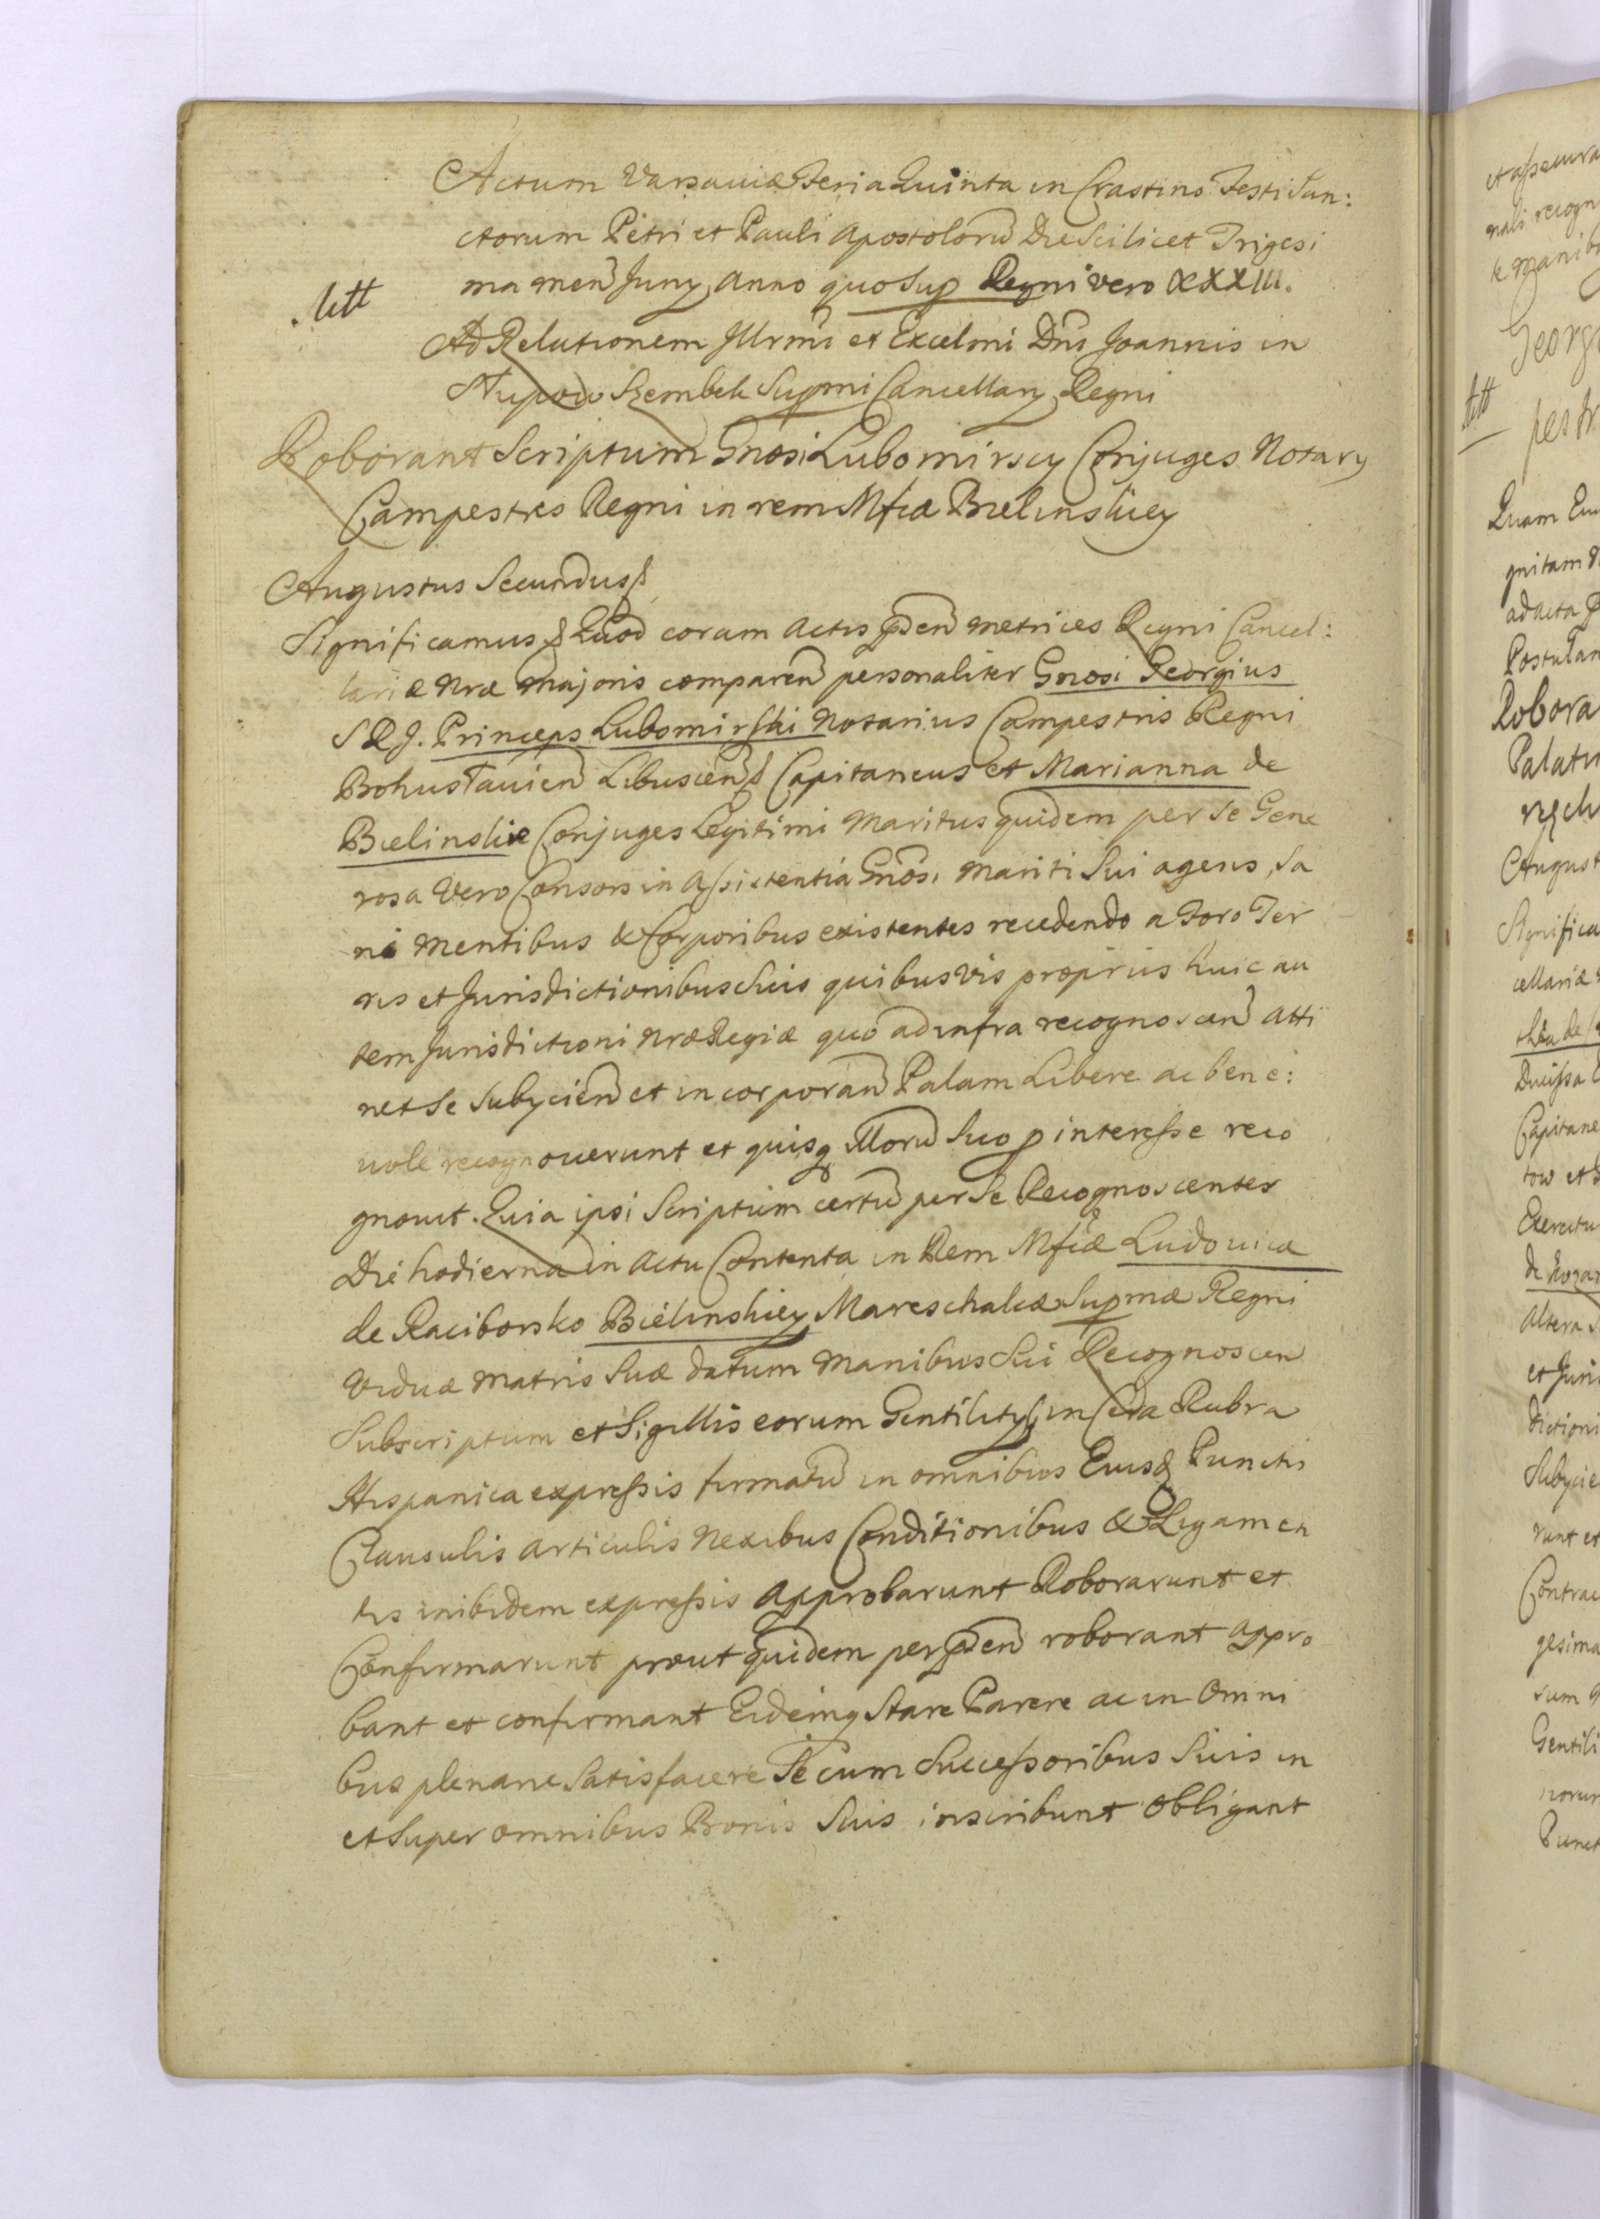 Actum Varsaviæ Feria Quinta in Crastino Festi San:
ctorum Petri et Pauli Apostoloru Die Scilicet Trigesi
ma men Juny Anno quo Sup Regni vero XXXIII.
litt
Ad Relationem Illrmi et Excelmi Dni Joannis in
Słupow Szembek Supmi Cancellary Regni
Roborant Scriptum Gnosi Lubomirscy Conjuges Notary
Campestres Regni in rem Mfcæ Bielinskiey
Augustus Secundus
Significamus Quod coram Actis pden Metrices Regni Cancel:
lariæ Nræ Majoris comparen personaliter Gnosi Georgius
S R J. Princeps Lubomirski Notarius Campestris Regni
Bohuslavien Libuscen Capitaneus et Marianna de
Bielinskie Conjuges Legitimi Maritus quidem per se Gene
rosa Vero Consors in Assistentia Gnosi Mariti Sui agens, Sa
ni Mentibus & Corporibus existentes recedendo a Foro Ter
ris et Jurisdictionibus Suis quibusvis proprius huic au
tem Jurisdictioni Nræ Regiæ quo ad infra recognoscen Atti
net Se Subycien et incorporan Palam Libere ac bene:
vole recognoverunt et quisq Illoru Suo p interesse reco
gnovit. Quia ipsi Scriptum certu per Se Recognoscentes
Die hodierna in Actu Contenta in Rem Mfcæ Ludovicæ
de Raciborsko Bielinskiey Mareschalcæ Supmæ Regni
Viduæ Matris Suæ datum Manibus Sui Recognoscen
Subscriptum et Sigillis eorum Gentilitys in Cera Rubra
Hispanica expressis firmatu in omnibus Eiusq Punctis
Clausulis Articulis Nexibus Conditionibus & Ligamen
tis inibidem expressis Approbarunt Roborarunt et
Confirmarunt prout quidem per pden roborant Appro
bant et confirmant Eidemq Stare Parere ac in Omni
bus plenarie Satisfacere Se cum Successoribus Suis in
et Super omnibus Bonis Suis inscribunt Obligant
litt
Georg
Quam
ad acta
Robora
Palati
August
Significa
cellariæ
Capitane
Exercitu
Altera
et Juris
dictioni
Subycie
runt et
Contrac
gesima
Gentili
Punct